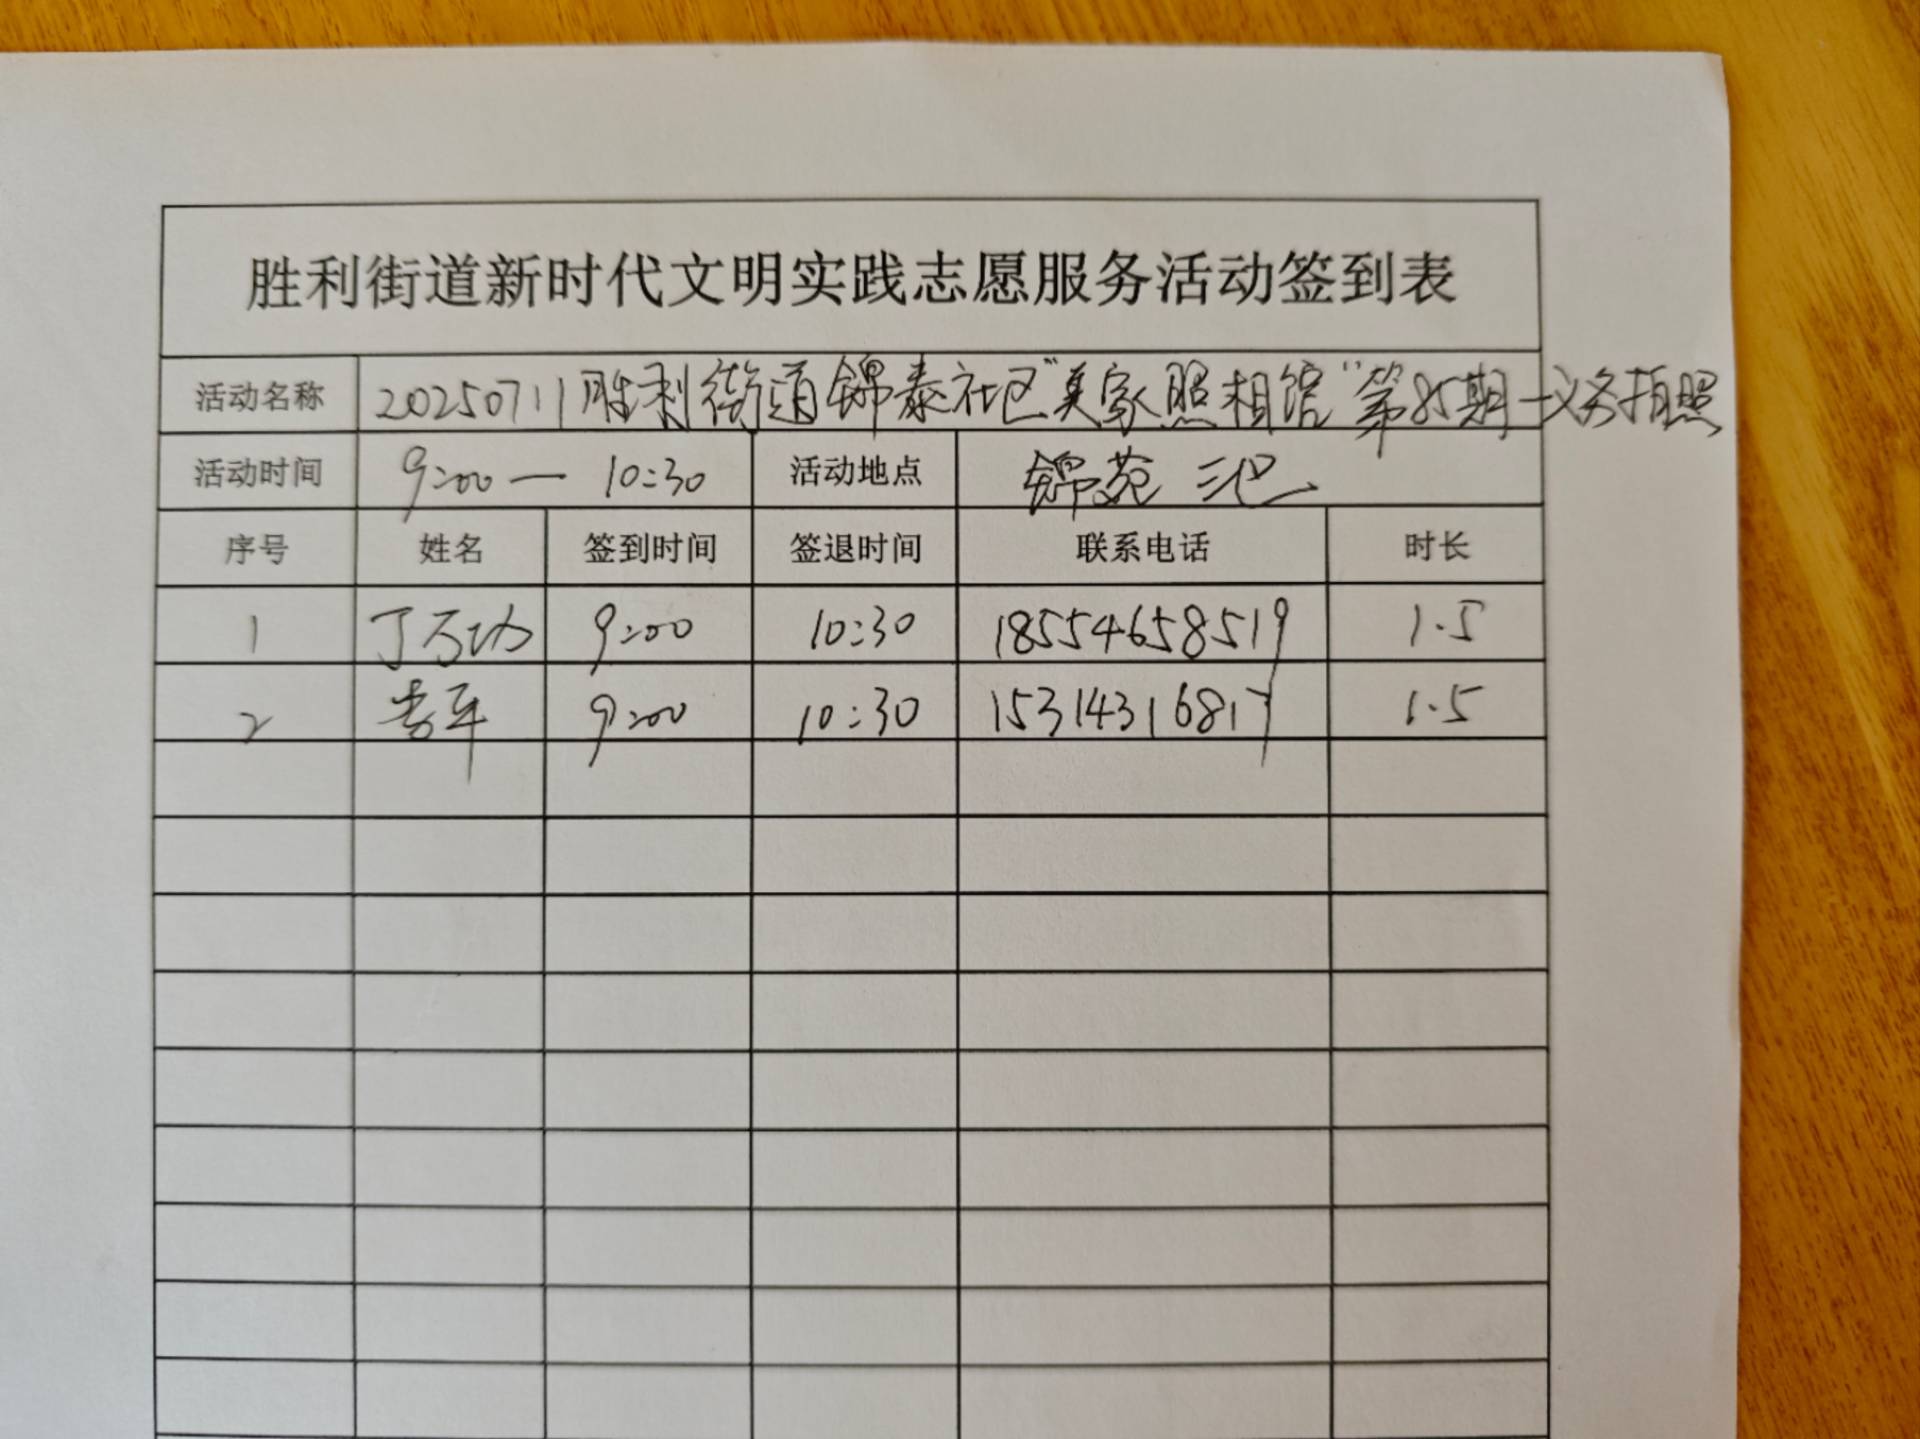 胜利街道新时代文明实践志愿服务活动签到表
活动名称 20250711胜利街道锦泰社区"吴家照相馆"第85期—义务拍照
活动时间 9:00— 10:30 活动地点 锦苑三区
序号 姓名 签到时间 签退时间 联系电话 时长
1 丁万功 9:00 10:30 18554658519 1.5
2 9:00 10:30 15314316817 1.5